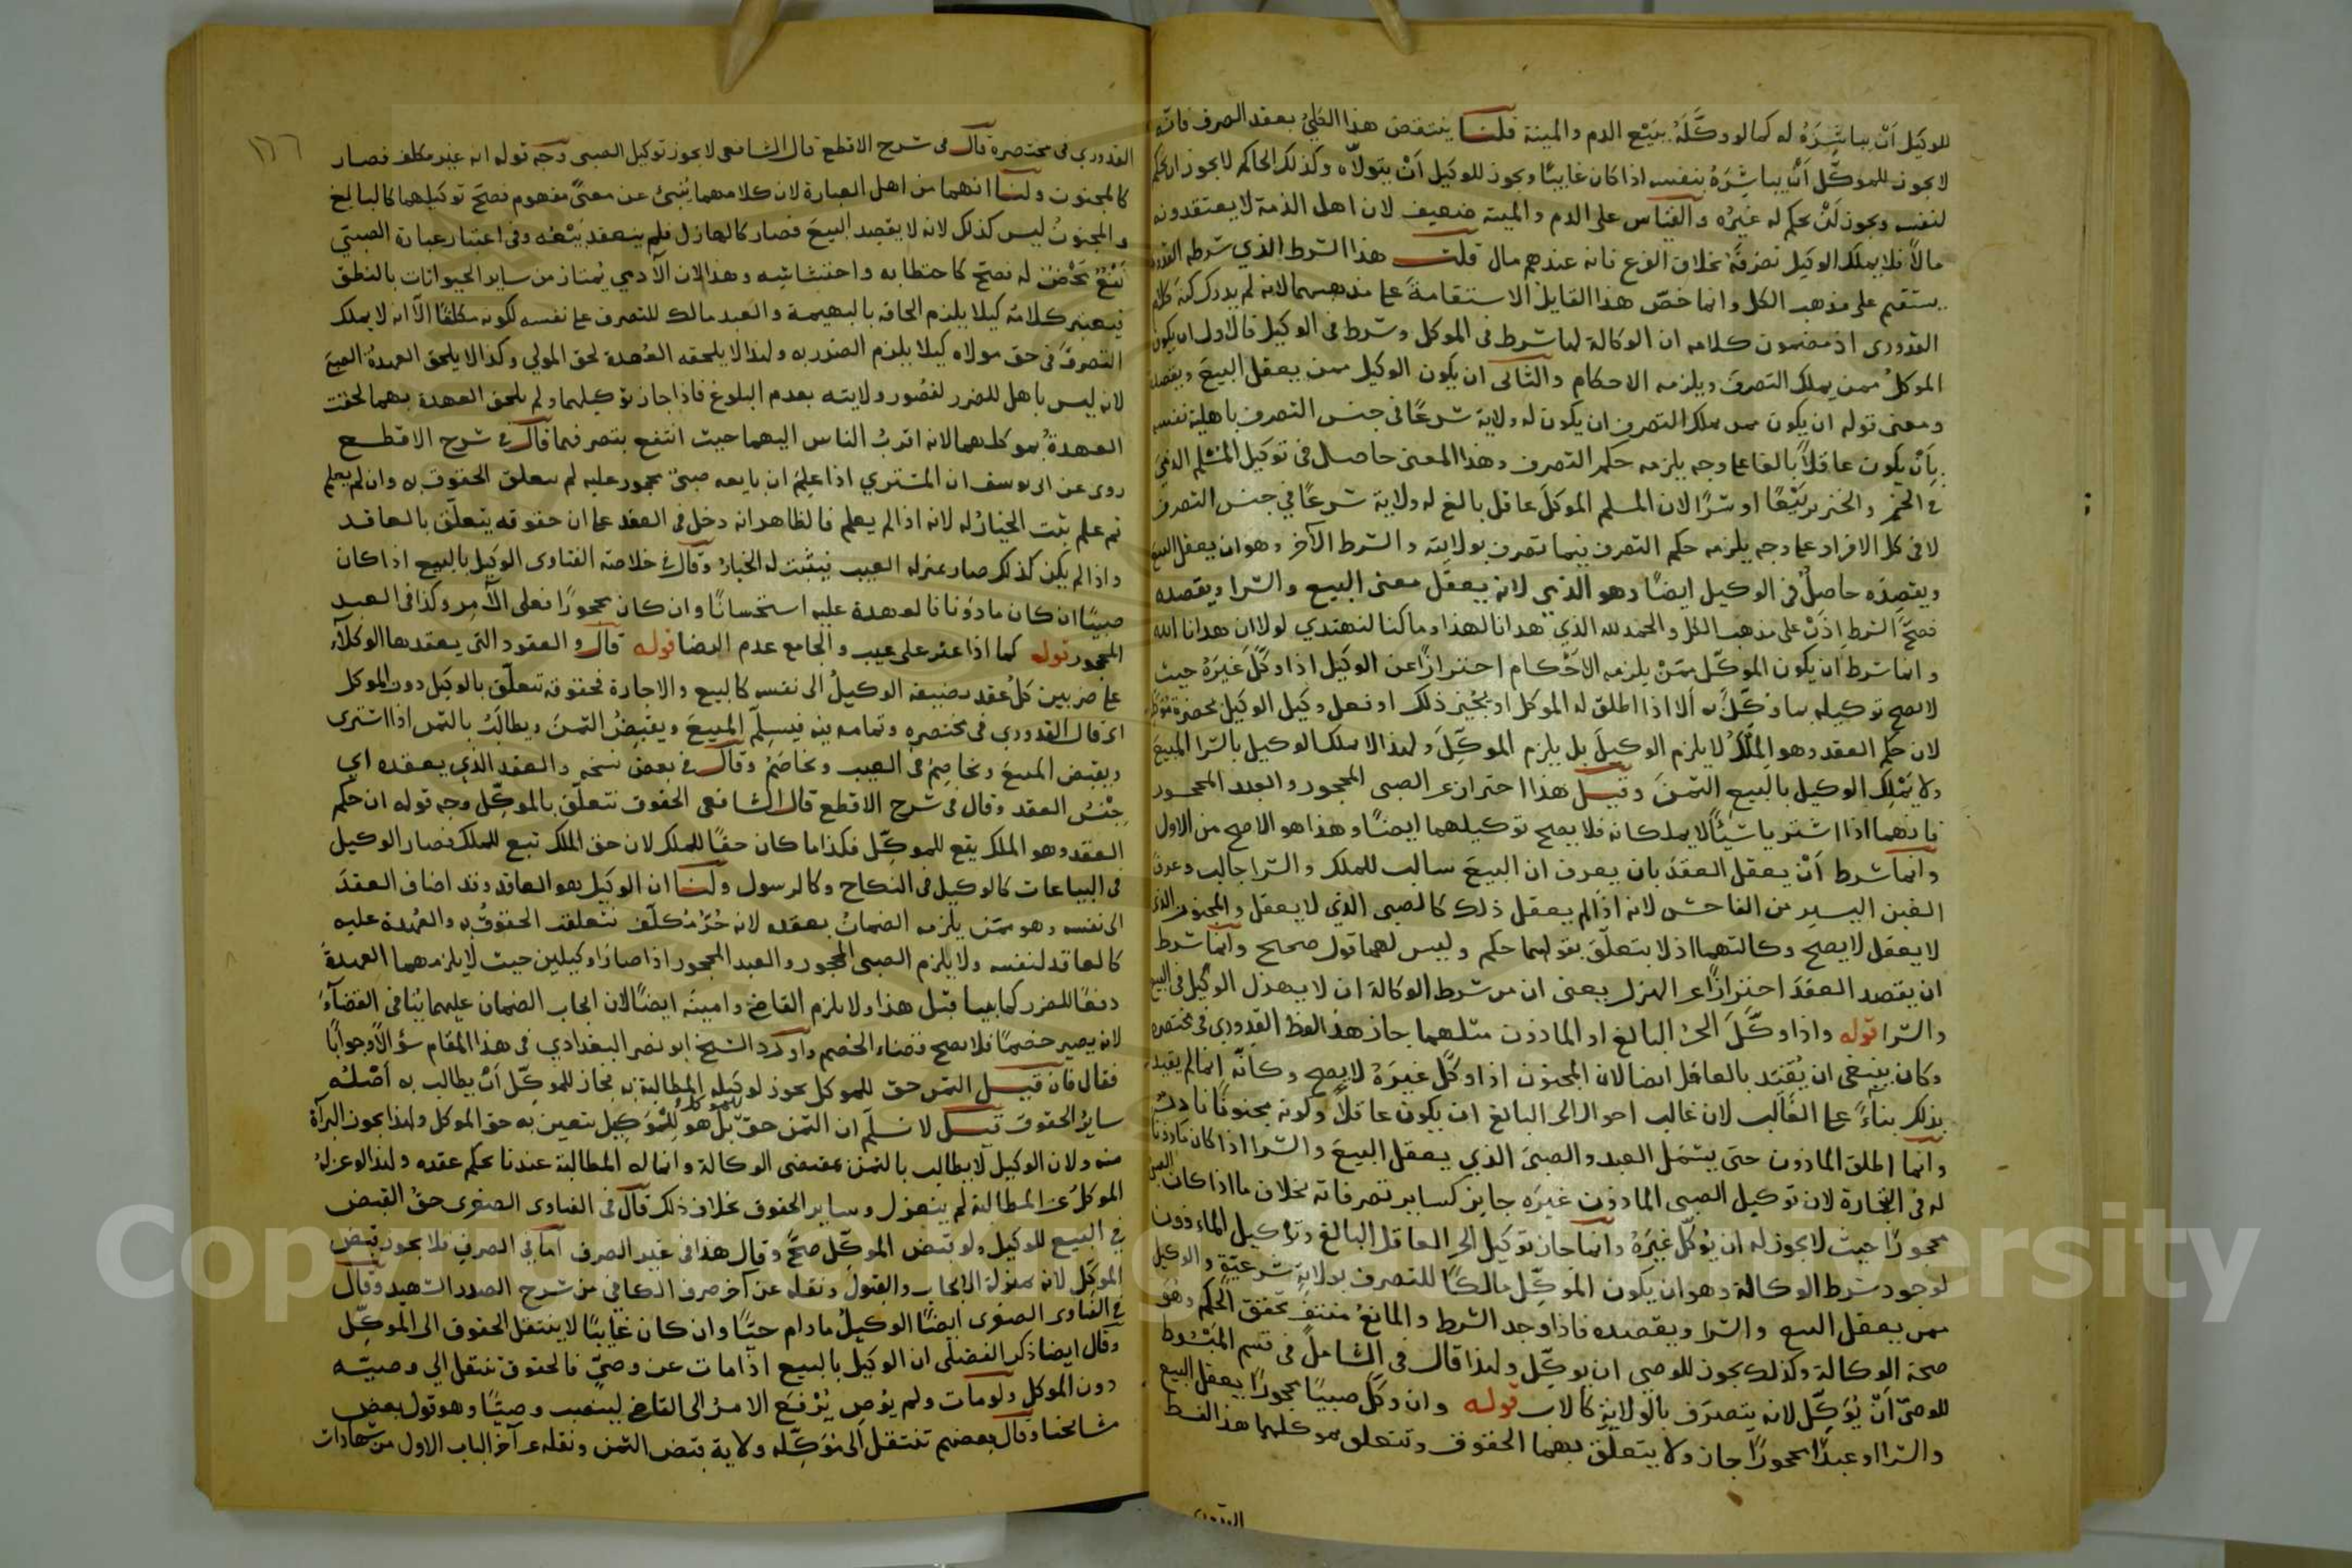 للوكيل أن يباشره له كما لو وكله ببيع الدم والميتة قلنا ينتقض هذا الكلي بعقد الصرف فانه
لا يجوز للموكل أن يباشره بنفسه اذا كان غايبا ويجوز للوكيل أن يتولاه وكذلك الحاكم لا يجوز ان يحكم
لنفسه ويجوز لمن يحكم له غيره والقياس على الدم والميتة ضعيف لان اهل الذمة لا يعتقدونه
مالا فلا يملك الوكيل تصرفه بخلاف الفرع فانه عندهم مال قلت هذا الشرط الذي شرطه القدوري
يستقيم على مذهب الكل وانما خص هذا القايل الاستقامة على مذهبهما لانه لم يدرك كنه كلام
القدوري اذ مضمون كلامه ان الوكالة لها شرط في الموكل وشرط في الوكيل فالاول ان يكون
الموكل ممن يملك التصرف ويلزمه الاحكام والثاني ان يكون الوكيل ممن يعقل البيع ويقصده
ومعنى قوله ان يكون ممن يملك التصرف ان يكون له ولاية شرعا في جنس التصرف باهلية نفسه
بأن يكون عاقلا بالغا على وجه يلزمه حكم التصرف وهذا المعنى حاصل في توكيل المسلم الذمي
في الخمر والخنزير بيعا او شرا لان المسلم الموكل عاقل بالغ له ولاية شرعا في جنس التصرف
لا في كل الافراد على وجه يلزمه حكم التصرف فيما تصرف بولايته والشرط الآخر وهو ان يعقل البيع
ويقصده حاصل في الوكيل ايضا وهو الذمي لانه يعقل معنى البيع والشرا ويقصده
فصح الشرط اذن على مذهب الكل والحمد لله الذي هدانا لهذا وما كنا لنهتدي لولا ان هدانا الله
وانما شرط ان يكون الموكل ممن يلزمه الاحكام احترازا عن الوكيل اذا وكل غيره حيث
لا يصح توكيله بما وكل به الا اذا اطلق له الموكل او يجيز ذلك او فعل وكيل الوكيل بحضرة
لان حكم العقد وهو الملك لا يلزم الوكيل بل يلزم الموكل ولهذا لا يملك الوكيل بالشرا المبيع
ولا يملك الوكيل بالبيع الثمن وقيل هذا احتراز عن الصبي المحجور والعبد المحجور
فانهما اذا اشتريا شيئا لا يملكانه فلا يصح توكيلهما ايضا وهذا هو الاصح من الاول
وانما شرط أن يعقل العقد بان يعرف ان البيع سالب للملك والشرا جالب وعرف
الغبن اليسير من الفاحش لانه اذا لم يعقل ذلك كالصبي الذي لا يعقل والمجنون الذي
لا يعقل لا يصح وكالتهما اذ لا يتعلق بقولهما حكم وليس لهما قول صحيح وانما شرط
ان يقصد العقد احترازا عن الهزل يعني ان من شرط الوكالة ان لا يهزل الوكيل في البيع
والشرا قوله واذا وكل الحر البالغ او الماذون مثلهما جاز هذا لفظ القدوري في مختصره
وكان ينبغي ان يقيد بالعاقل ايضا لان المجنون اذا وكل غيره لا يصح وكأنه انما لم يقيد
بذلك بناء على الغالب لان غالب احوال الحر البالغ ان يكون عاقلا وكونه مجنونا نادر
وانما اطلق الماذون حتى يشمل العبد والصبي الذي يعقل البيع والشرا اذا كان ماذونا
له في التجارة لان توكيل الصبي الماذون غيره جايز كساير تصرفاته بخلاف ما اذا كان الصبي
محجورا حيث لا يجوز له ان يوكل غيره وانما جاز توكيل الحر العاقل البالغ وتوكيل الماذون
لوجود شرط الوكالة وهو ان يكون الموكل مالكا للتصرف بولاية شرعية والوكيل
ممن يعقل البيع والشرا ويقصده فاذا وجد الشرط والمانع منتف تحقق الحكم وهو
صحة الوكالة وكذلك يجوز للوصي ان يوكل ولهذا قال في الشامل في قسم المبسوط
للوصي أن يوكل لانه يتصرف بالولاية كالاب قوله وان وكل صبيا محجورا يعقل البيع
والشرا او عبدا محجورا جاز ولا يتعلق بهما الحقوق وتتعلق بموكلهما هذا لفظ
القدوري
١٦٦
القدوري في مختصره قال في شرح الاقطع قال الشافعي لا يجوز توكيل الصبي وجه قوله انه غير مكلف فصار
كالمجنون ولنا انهما من اهل العبارة لان كلامهما ينبئ عن معنى مفهوم فصح توكيلهما كالبالغ
والمجنون ليس كذلك لانه لا يقصد البيع فصار كالهازل فلم ينعقد بيعه وفي اعتبار عبارة الصبي
نفع محض له فصح كاحتطابه واحتشاشه وهذا لان الآدمي يمتاز من ساير الحيوانات بالنطق
فيعتبر كلامه كيلا يلزم الحاقه بالبهيمة والعبد مالك للتصرف على نفسه لكونه مكلفا الا انه لا يملك
التصرف في حق مولاه كيلا يلزم الضرر به ولهذا لا يلحقه العهدة لحق المولى وكذا لا يلحق العهدة الصبي
لانه ليس باهل للضرر لقصور ولايته بعدم البلوغ فاذا جاز توكيلهما ولم يلحق العهدة بهما لحقت
العهدة بموكلهما لانه اقرب الناس اليهما حيث انتفع بتصرفهما قال في شرح الاقطع
روى عن ابي يوسف ان المشتري اذا علم ان بايعه صبي محجور عليه لم يتعلق الحقوق به وان لم يعلم
ثم علم يثبت الخيار له لانه اذا لم يعلم فالظاهر انه دخل في العقد على ان حقوقه يتعلق بالعاقد
واذا لم يكن كذلك صار بمنزلة العيب فيثبت له الخيار وقال في خلاصة الفتاوى الوكيل بالبيع اذا كان
صبيا ان كان ماذونا فالعهدة عليه استحسانا وان كان محجورا فعلى الآمر وكذا في العبد
المحجور قوله كما اذا عثر على عيب والجامع عدم الرضا قوله قال والعقود التي يعقدها الوكلاء
على ضربين كل عقد يضيفه الوكيل الى نفسه كالبيع والاجارة فحقوقه تتعلق بالوكيل دون الموكل
اي قال القدوري في مختصره وتمامه فيه فيسلم المبيع ويقبض الثمن ويطالب بالثمن اذا اشترى
ويقبض المبيع ويخاصم في العيب ويخاصم وقال في بعض نسخه والعقد الذي يعقده اي
جنس العقد وقال في شرح الاقطع قال الشافعي الحقوق تتعلق بالموكل وجه قوله ان حكم
العقد وهو الملك يقع للموكل فكذا ما كان حقا للملك لان حق الملك تبع للملك فصار الوكيل
في البياعات كالوكيل في النكاح وكالرسول ولنا ان الوكيل هو العاقد وقد اضاف العقد
الى نفسه وهو ممن يلزمه الضمان بعقده لانه حر مكلف فتعلقت الحقوق به والعهدة عليه
كالعاقد لنفسه ولا يلزم الصبي المحجور والعبد المحجور اذا صارا وكيلين حيث لا يلزمهما العهدة
دفعا للضرر كما بينا قبل هذا ولا يلزم القاضي وامينه ايضا لان ايجاب الضمان عليهما ينافي القضاء
لانه يصير خصما فلا يصح قضاء الخصم وأورد الشيخ ابو نصر البغدادي في هذا المقام سؤالا وجوابا
فقال فان قيل الثمن حق للموكل يجوز لوكيله المطالبة به فجاز للموكل أن يطالب به أصله
ساير الحقوق قيل لا نسلم ان الثمن حق للموكل بل هو للوكيل يتعين به حق الموكل ولهذا يجوز البرآة
منه ولان الوكيل لا يطالب بالثمن بمقتضى الوكالة وانما له المطالبة عندنا بحكم عقده ولهذا لو عزله
الموكل عن المطالبة لم ينعزل وساير الحقوق بخلاف ذلك قال في الفتاوى الصغرى حق القبض
في البيع للوكيل ولو قبض الموكل صح وقال هذا في غير الصرف أما في الصرف فلا يجوز قبض
الموكل لانه بمنزلة الايجاب والقبول ونقله عن آخر صرف الكافي من شرح الصدر الشهيد وقال
في الفتاوى الصغرى ايضا الوكيل ما دام حيا وان كان غايبا لا ينتقل الحقوق الى الموكل
وقال ايضا ذكر الفضلي ان الوكيل بالبيع اذا مات عن وصي فالحقوق تنتقل الى وصيه
دون الموكل ولو مات ولم يوص يرفع الامر الى القاضي لينصب وصيا وهو قول بعض
مشايخنا وقال بعضهم تنتقل الى موكله ولاية قبض الثمن ونقله عن آخر الباب الاول من شهادات
Copyright © King Saud University